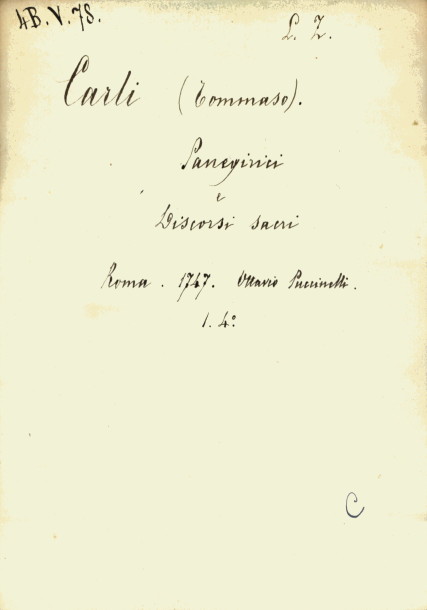 4B.V.78.
L. Z.
Carli (Tommaso).
Panegirici
e
Discorsi sacri
Roma. 1747. Ottavio Puccinelli.
1. 4º
C